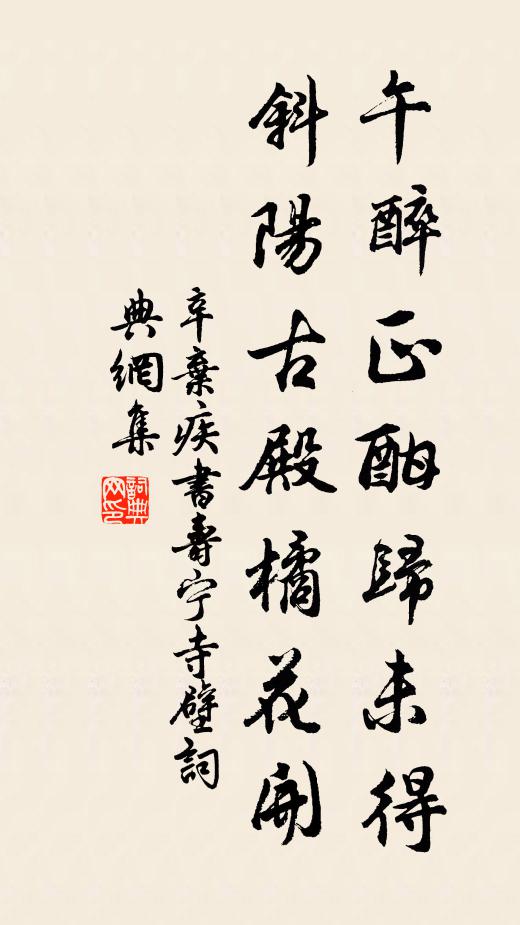 午醉正酣歸未得
斜陽古殿橘花開
辛棄疾書壽宁寺壁詞
典網集
詞典网印